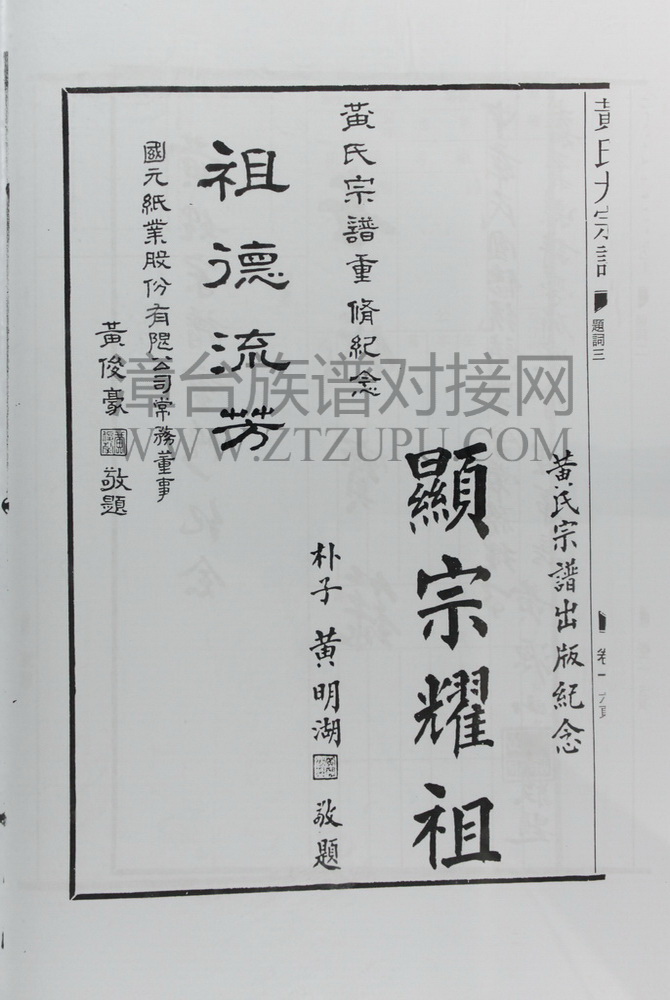 黃氏大宗譜
題詞三
卷一 六頁
黃氏宗譜出版紀念
顯宗耀祖
朴子 黃明湖 敬題
黃氏宗譜重脩紀念
祖德流芳
國元紙業股份有限公司常務董事
黃俊豪 敬題
章台族谱对接网
WWW.ZTZUPU.COM